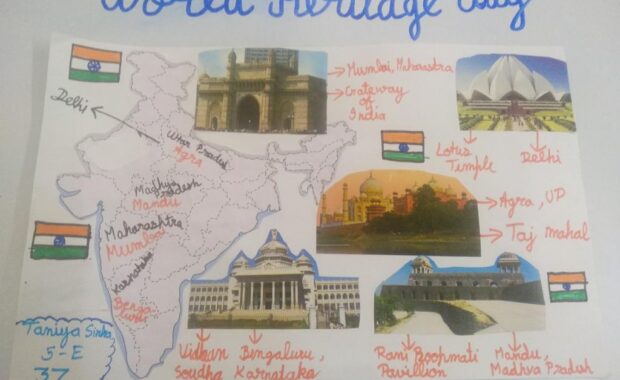 World Heritage Day
Delhi
Uttar Pradesh
Agra
Madhya
Pradesh
Mandu
Maharashtra
Mumbai
Karnataka
Benga
luru
Mumbai, Maharastra
Gateway
of
India
Lotus
Temple
Delhi
Agra, UP
Taj mahal
Vidhan
Soudha
Bengaluru,
Karnataka
Rani Roopmati
Pavillion
Mandu,
Madhya Pradesh
Taniya Sinha
5-E
37